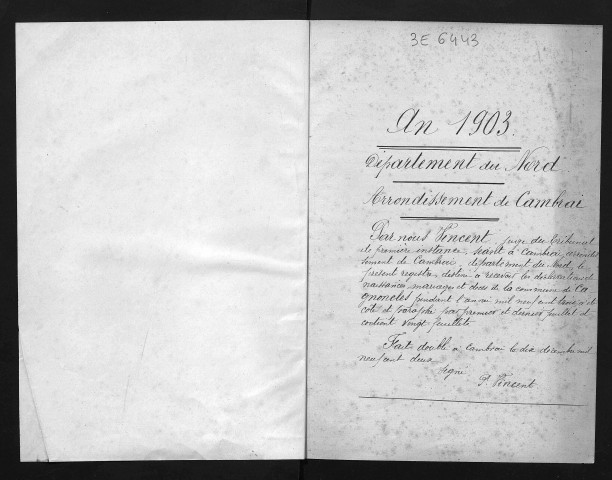 3E 6443
An 1903.
Département du Nord
Arrondissement de Cambrai
Par nous Vincent, juge du Tribunal
de première instance séant à Cambrai arrondis
sement de Cambrai, département du Nord, le
présent registre destiné à recevoir les déclarations de
naissances, mariages et décès de la commune de Ca
gnoncles pendant l'année mil neuf cent trois a été
coté et paraphé par premier et dernier feuillet et
contient vingt feuillets
Fait double à Cambrai le dix décembre mil
neuf cent deux
Signé
P. Vincent